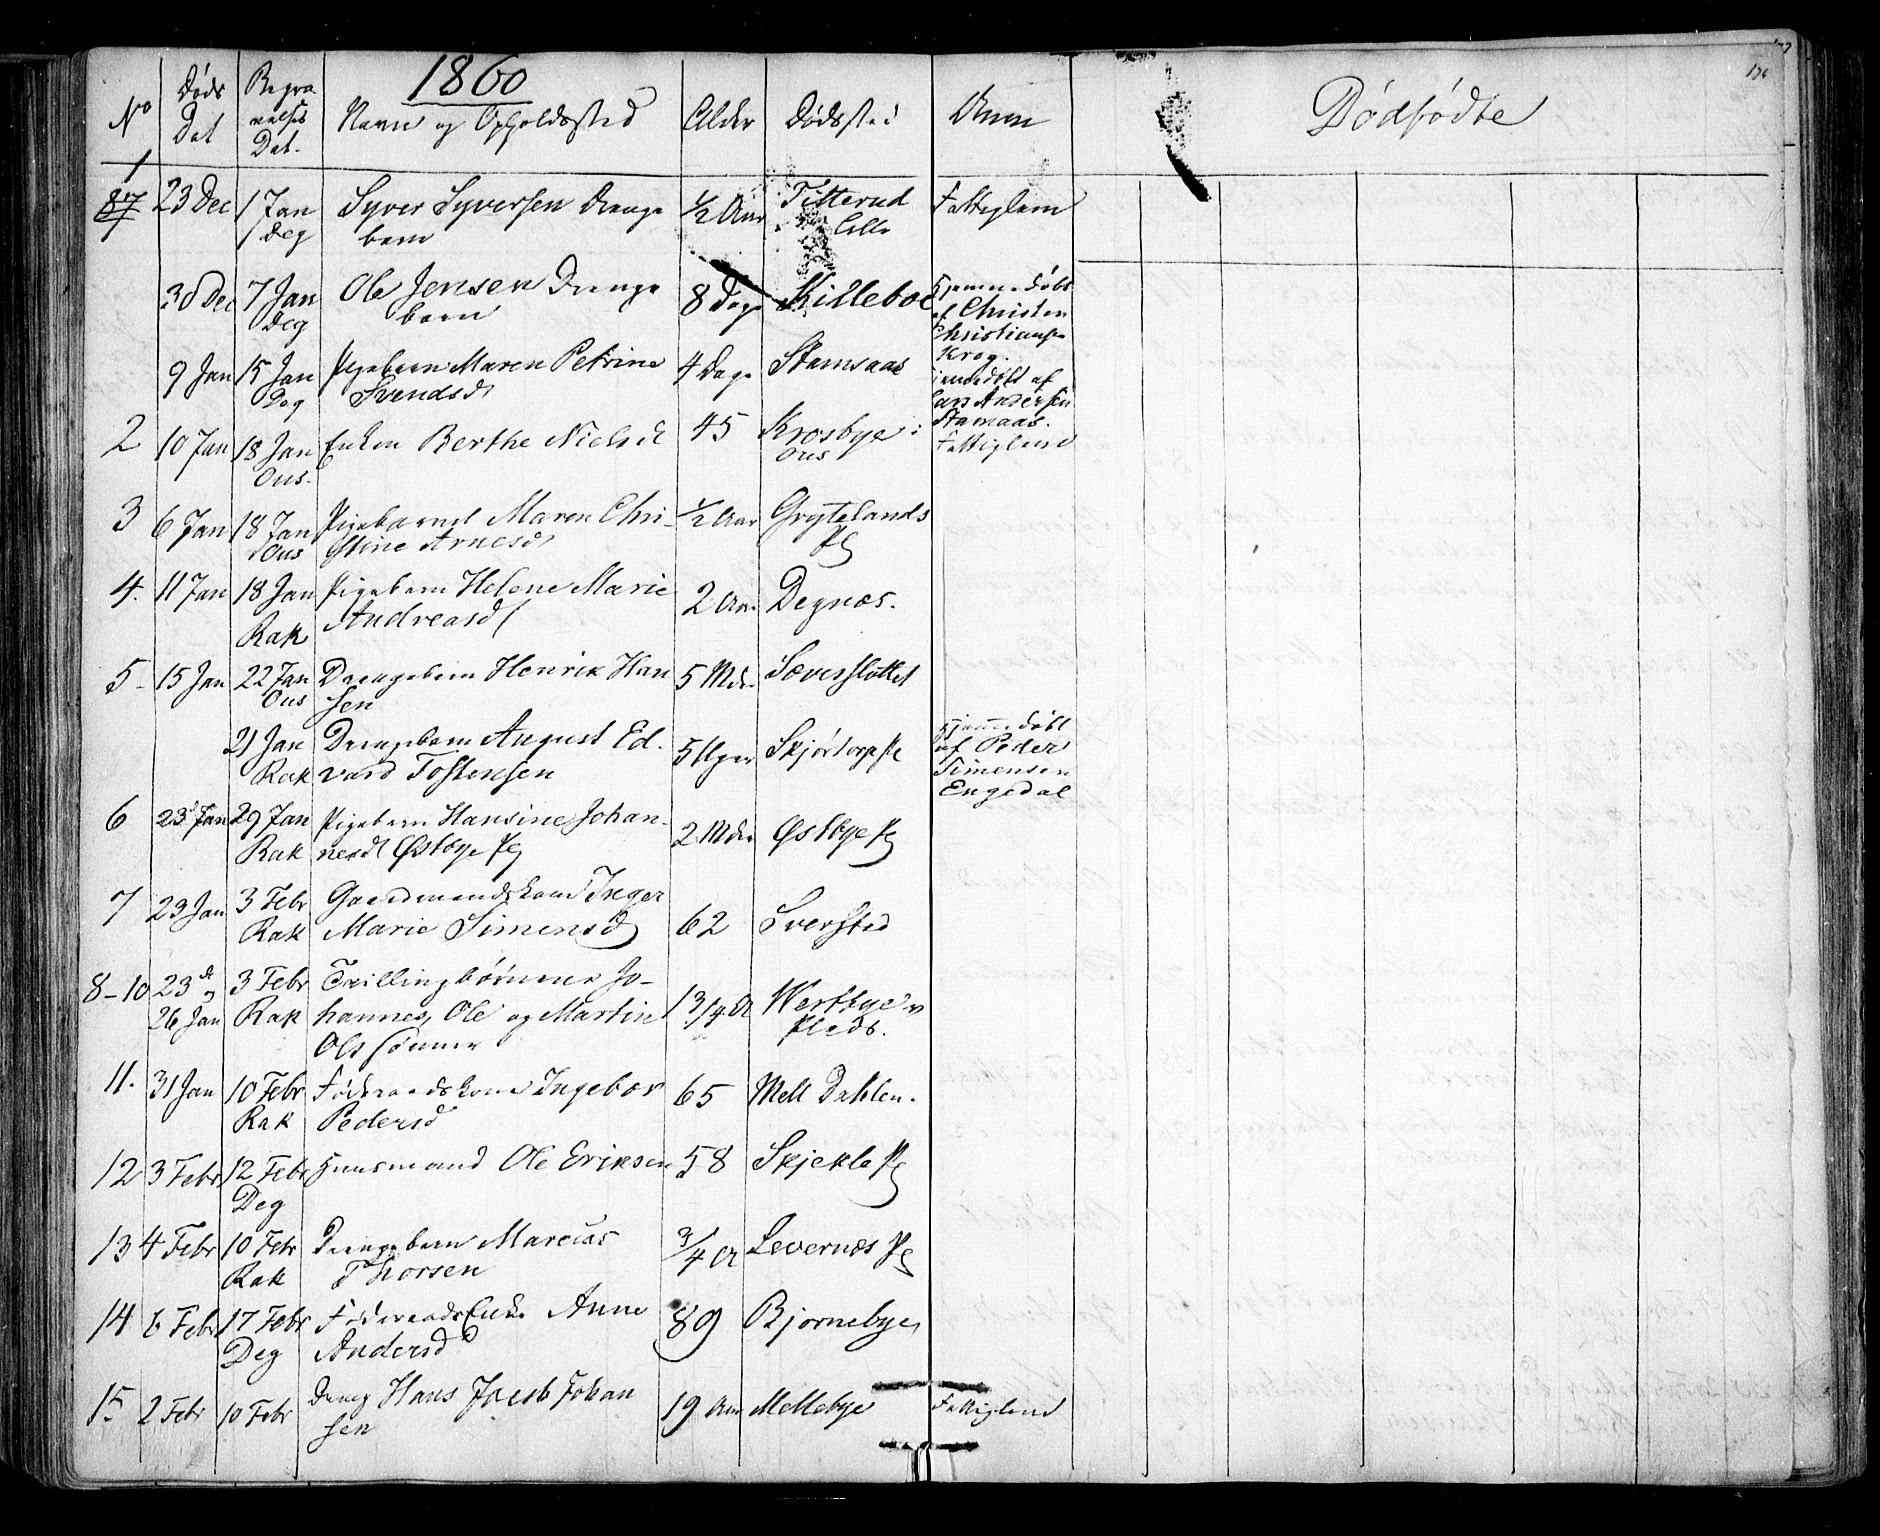 1860
No
Døds Dat
Begravelses Dat.
Navn og Opholdssted
Alder
Dødssted
Anm
Dødfødte
1
87 23 Dec 1 Jan Syver Syversen Drenge ½ Aar Titterud Fattiglem
Deg barn Lille
30 Dec 7 Jan Ole Jensen Drenge 8 Dage Killeboe Hjemmedøbt
Deg barn af Christen
Christiansen
Krog.
9 Jan 15 Jan Pigebarn Maren Petrine 4 Dage Stamsaas hjemmedøbt af
Deg Svendsd Lars Andersen
Stamsaas.
2 10 Jan 18 Jan Enken Berthe Nielsd 45 Krosbye i Fattiglem
Ous. Ous
3 6 Jan 18 Jan Pigebarnet Maren Chri- ½ Aar Grytelands
Ous stine Arnesd Pl
4. 11 Jan 18 Jan Pigebarn Helene Marie 2 Aar Degnæs.
Rak Andreasd
5- 15 Jan 22 Jan Drengebarn Henrik Han 5 Mdr Sæverslottet
Ous sen
21 Jan Drengebarn August Ed- 5 Uger Skjørtorp Pl Hjemmedøbt
Rak vard Tostensen af Peder
Simensen
Engedal
6 23 Jan 29 Jan Pigebarn Hansine Johan- 2 Mdr Østbye Pl
Rak nesd Østbye Pl
7 23 Jan 3 Febr Gaardmandskone Inger 62 Sversted
Rak Marie Simensd
8-10 23de og 3 Febr Trillingbørnene Jo- 1 3/4 A Westbye
26 Jan Rak hannes, Ole og Martin Plads.
Ols sønner
11. 31 Jan 10 Febr Føderaadskone Ingebor 65 Mell Dahlen.
Rak Pedersd
12 3 Febr 12 Febr Huusmand Ole Eriksen 58 Skjekle Pl
Deg
13 4 Febr 10 Febr Drengebarn Marcus 3/4 A Levernæs Pl
Rak Thorsen
14 6 Febr 17 Febr Føderaads Enke Anne 89 Bjørnebye
Deg Andersd
15. 2 Febr 10 Febr Dreng Hans Jacob Johan 19 Aar Mellebye Fattiglem
sen